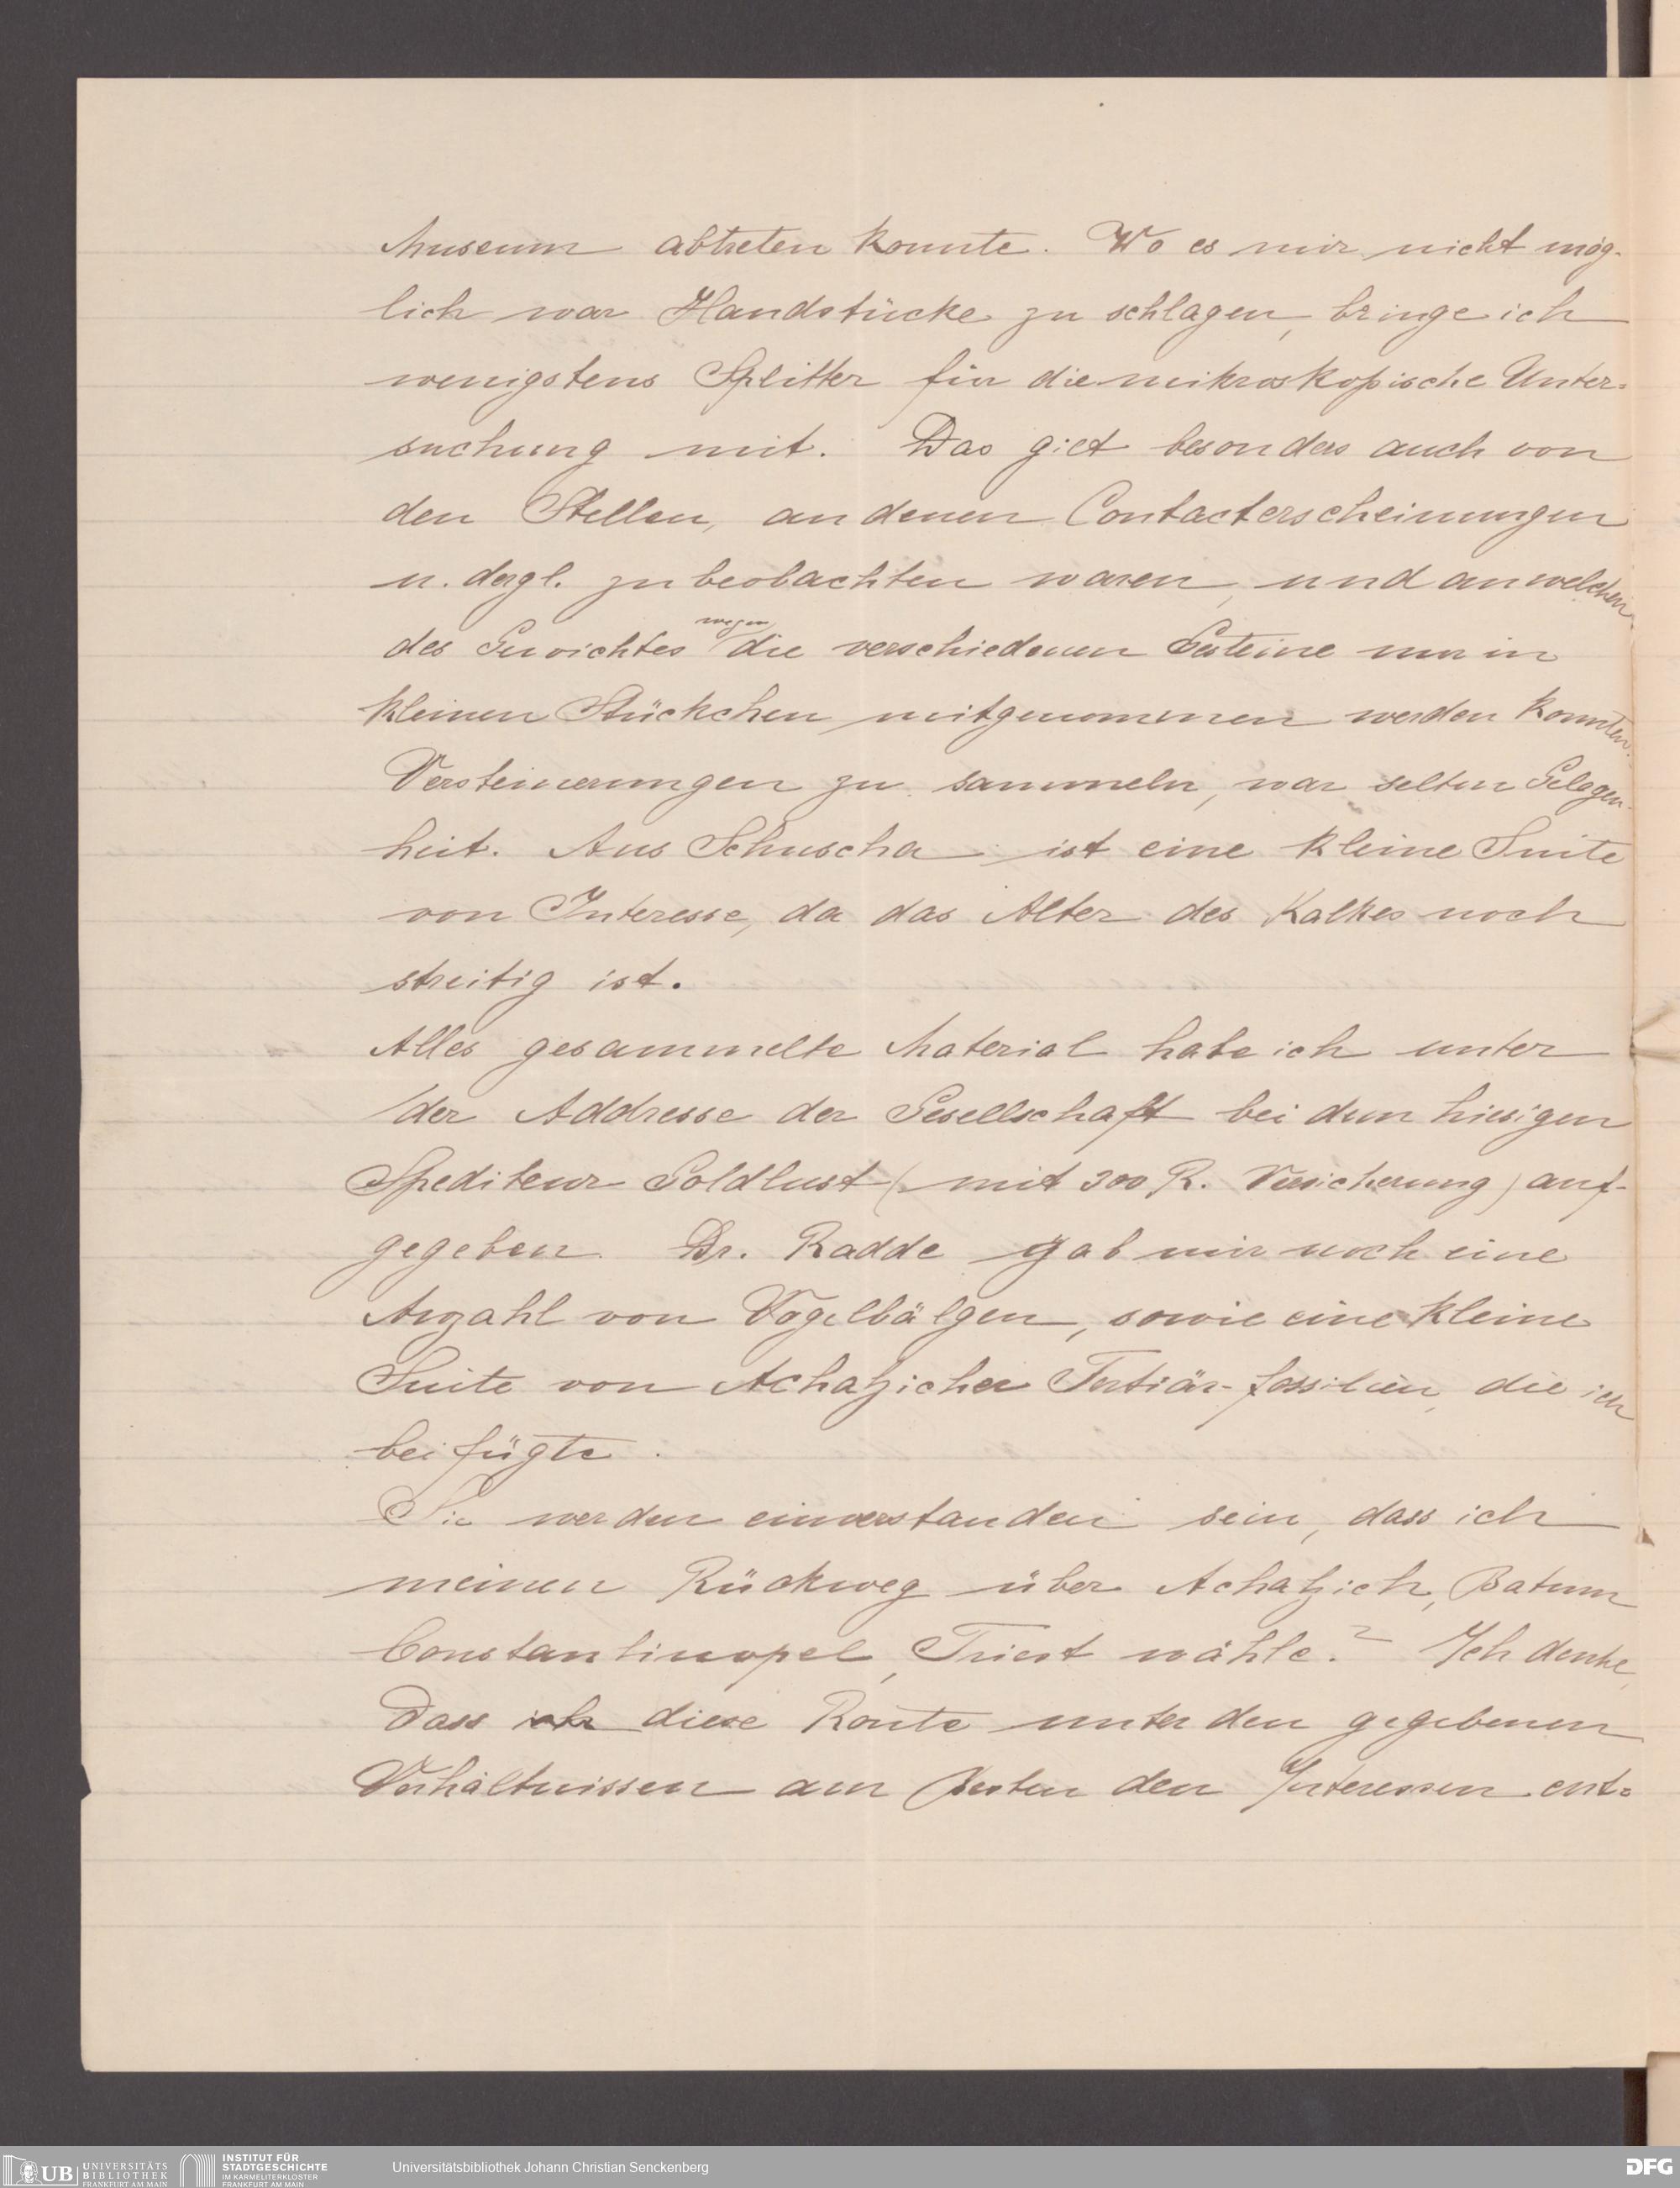 Museum abtreten konnte. Wo es mir nicht mög-
lich war Handstücke zu schlagen, bringe ich
wenigstens Splitter für die mikroskopische Unter-
suchung mit. Das gilt besonders auch von
den Stellen, an denen Contacterscheinungen
u. dergl. zu beobachten waren, und an welchen
des Gewichtes wegen die verschiedenen Gesteine nur in
kleinen Stückchen mitgenommen werden konnten.
Versteinerungen zu sammeln, war selten Gelegen-
heit. Aus Schuscha ist eine kleine Suite
von Interesse, da das Alter des Kalkes noch
streitig ist.
Alles gesammelte Material habe ich unter
der Addresse der Gesellschaft bei dem hiesigen
Spediteur Goldlust (mit 300 R. Versicherung) auf-
gegeben. Dr. Radde gab mir noch eine
Anzahl von Vögelbälgen, sowie eine kleine
Suite von Achatzicher Tertiär-fossilien, die ich
beifügte.
Sie werden einverstanden sein, dass ich
meinen Rückweg über Achatzich, Batum
Constantinopel, Triest wähle? Ich denke,
dass ich diese Route unter den gegebenen
Verhältnissen am Besten den Interessen ent-
UB UNIVERSITÄTS
BIBLIOTHEK
FRANKFURT AM MAIN
INSTITUT FÜR
STADTGESCHICHTE
IM KARMELITERKLOSTER
FRANKFURT AM MAIN
Universitätsbibliothek Johann Christian Senckenberg
DFG